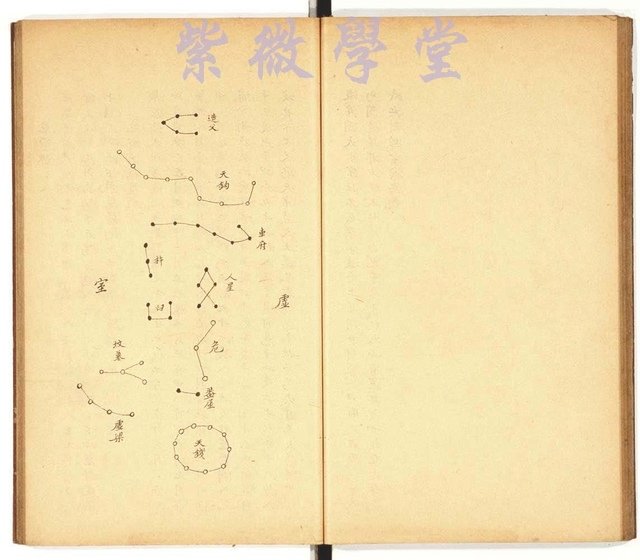 紫微學堂
造父
天鈎
車府
人星
杵
虛
室
臼
危
墳墓
蓋屋
虛梁
天錢